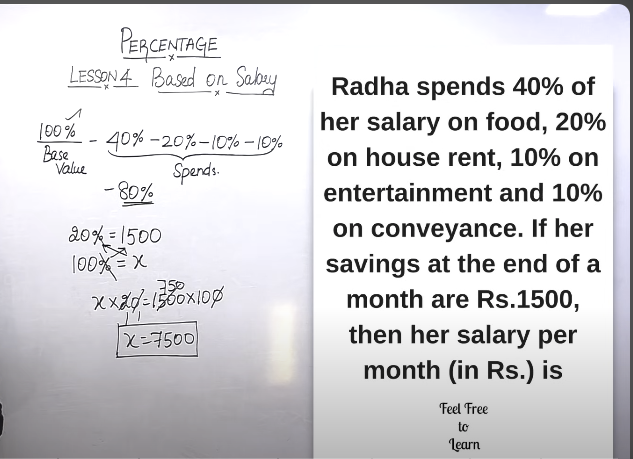 PERCENTAGE
LESSON 4 Based on Salary
100% - 40% - 20% - 10% - 10%
Base Value
Spends.
- 80%
20% = 1500
100% = x
750
x × 20 = 1500 × 100
x = 7500
Radha spends 40% of
her salary on food, 20%
on house rent, 10% on
entertainment and 10%
on conveyance. If her
savings at the end of a
month are Rs.1500,
then her salary per
month (in Rs.) is
Feel Free
to
Learn